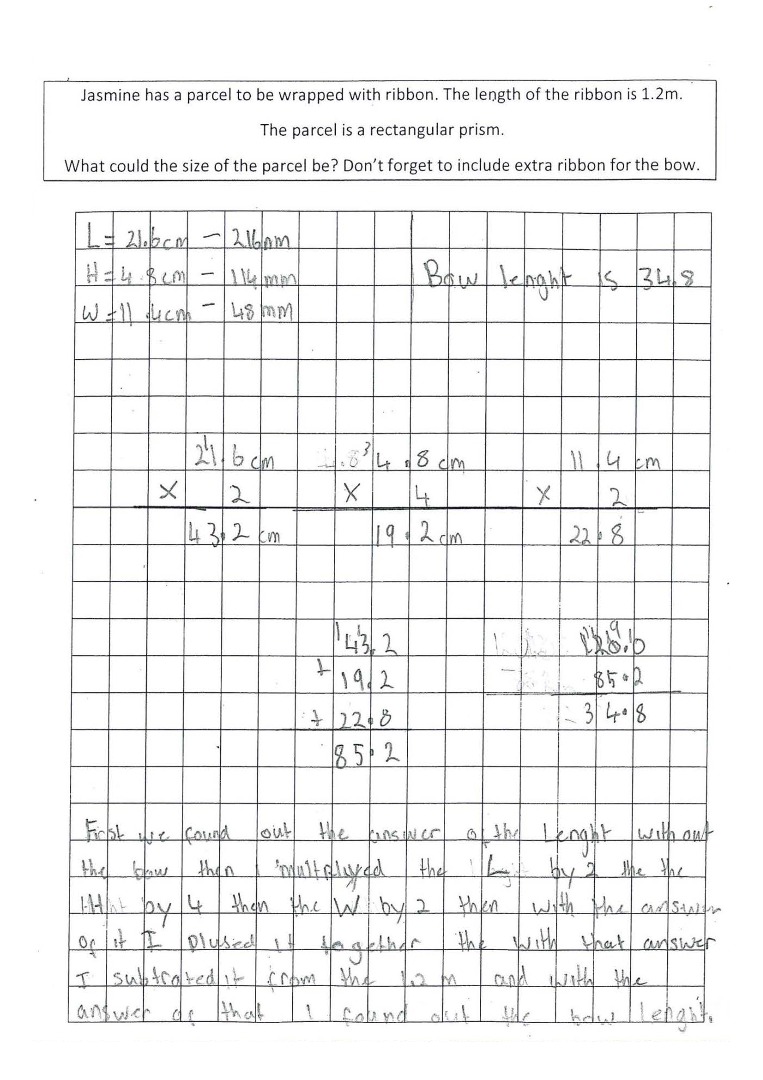 Jasmine has a parcel to be wrapped with ribbon. The length of the ribbon is 1.2m.
The parcel is a rectangular prism.
What could the size of the parcel be? Don't forget to include extra ribbon for the bow.
L= 21.6cm - 216mm
H=4.8cm - 114mm
Bow lenght is 34.8
W=11.4cm - 48mm
21.6cm 4.8cm 11.4cm
x 2 x 4 x 2
43.2cm 19.2cm 22.8
43.2
+ 19.2 85.2
+ 22.8 34.8
85.2
First we found out the answer of the Lenght without
the bow then I multplyed the L by 2 the the
by 4 then the W by 2 then with the answer
of it I plused it together the with that answer
I subtrated it from the 1.2m and with the
answer of that I found out the bow lenght.